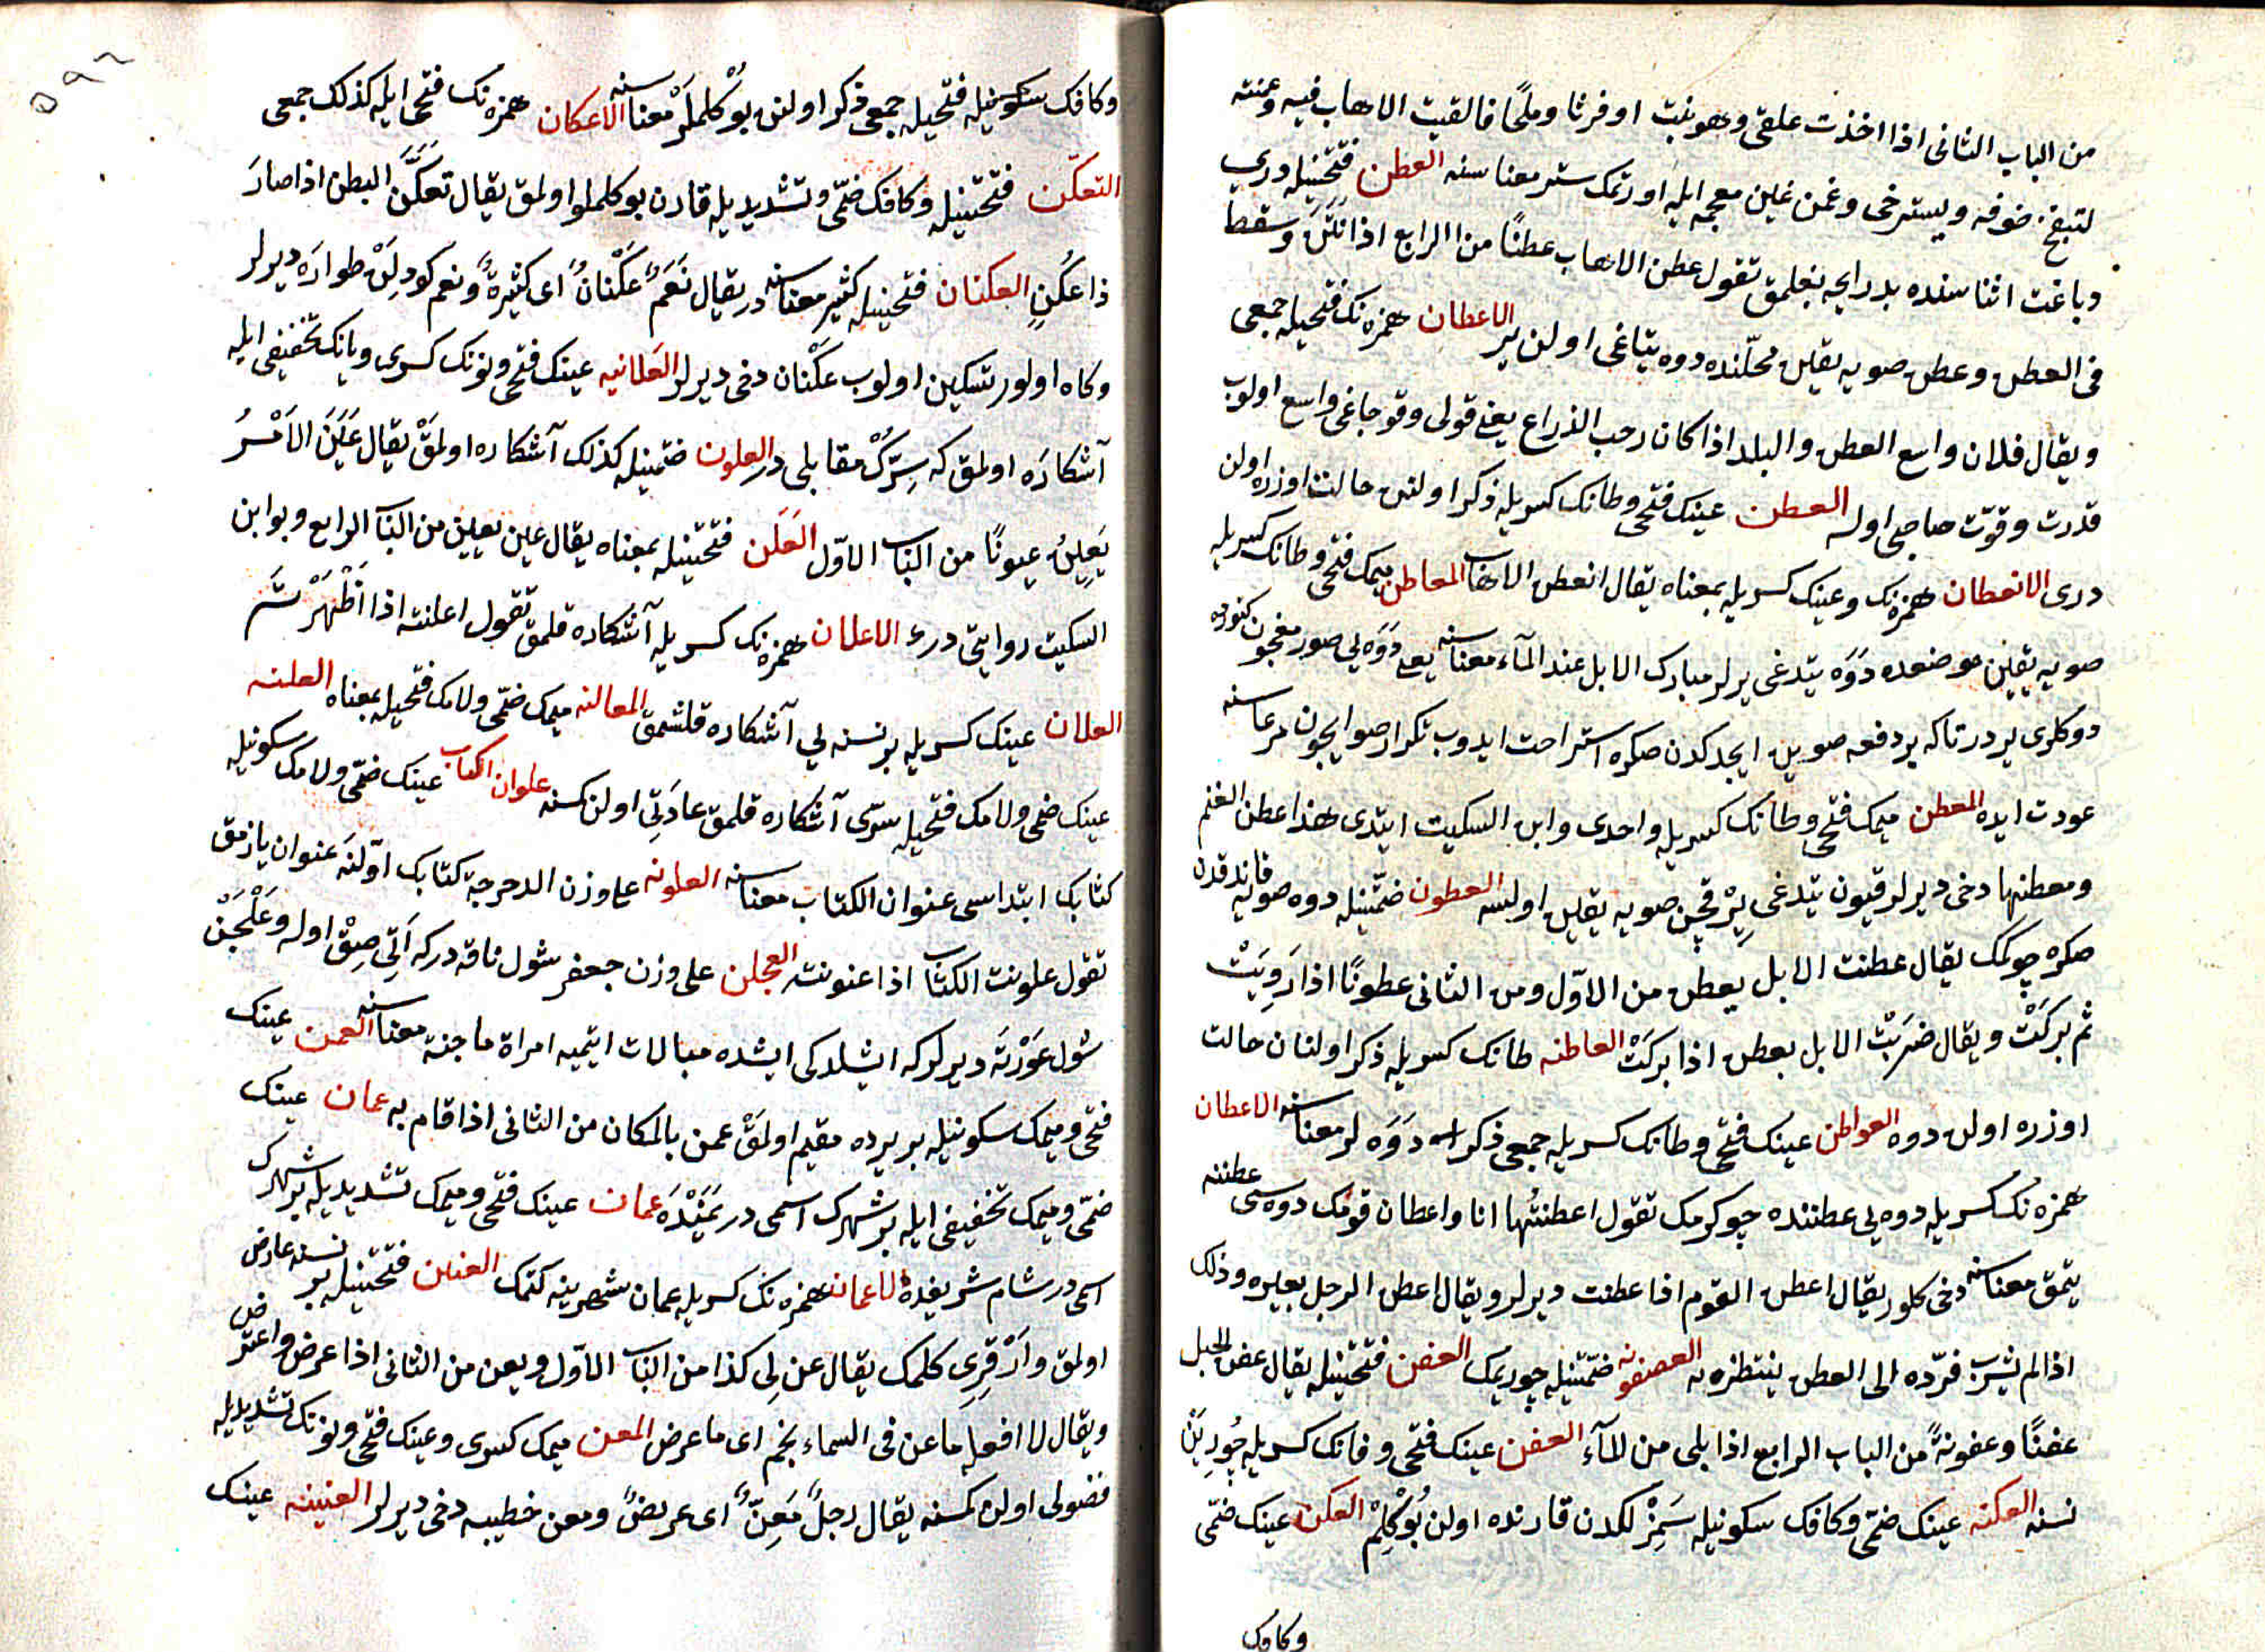 من الباب الثانى اذا اخذت علقى وهو نبت او فرثا وملحًا فالقيت الاهاب فيه وعنته
لتبفخ صوفه ويسترخى وغمن غين معجمه ايله اورتمك ستر معناسنه العطن فتحتينيله درى
وباغت اثناسنده بد رايحه بغلمق تقول عطن الاهاب عطنًا من الرابع اذا نَتَنَ وسقط
فى العطن وعطن صويه يقلن محلنده دوه يتاغى اولن ير الاعطان همزه نك فتحيله جمعى
ويقال فلان واسع العطن والبلد اذا كان رحب الذراع يعنى قولى وقوجاغى واسع اولوب
قدرت وقوّت صاحبى اوله العطن عينك فتحى وطانك كسريله ذكر اولنن حالت اوزره اولن
درى الانعطان همزه نك وعينك كسريله بمعناه يقال انعطن الاهاب المعاطن ميمك فتحى وطانك كسريله
صويه يقين موضعده دَوَه يتدغى يرلر مبارك الابل عند المآء معناسنه يعنى دَوَه يى صور مغجون كتوروه
دوكلرى يردر تاكه بر دفعه صويى ايجدكدن صكره استراحت ايدوب تكرار صو ايجون مرعاسنه
عودت ايده المعطن ميمك فتحى وطانك كسريله واحدى وابن السكيت ايتدى هذا عطن الغنم
ومعطنها دخى ديرلر قيون يتدغى يَرْ قچن صويه يقين اولسه العطون ضمّتينيله دوه صويه قاندقدن
صكره چوكمك يقال عطنت الابل يعطن من الاوّل ومن الثانى عطونًا اذا رَوِيَتْ
ثم بركَتْ ويقال ضربَتْ الابل بعطن اذا بركَتْ العاطنه طانك كسريله ذكر اولنان حالت
اوزره اولن دوه العواطن عينك فتحى وطانك كسريله جمعى ذكر اـ دَوَه لر معناسنه الاعطان
همزه نك كسريله دوه يى عطننده چوكرمك تقول اعطنتُها انا واعطان قومك دوه سى عطننه
يتمق معناسنه دخى كلور يقال اعطن القوم اذا عطنت ديرلر ويقال اعطن الرجل بعيره وذلك
اذا لم يشرب فرّده الى العطن ينتظره به العصفونه ضمّتينيله چوريمك العفن فتحتينيله يقال عفن الحبل
عفنًا وعفونةً من الباب الرابع اذا بلى من المآء العفن عينك فتحى وفانك كسريله چُورِيَن
نسنه العكنه عينك ضمّى وكافك سكونيله سَمِزْلكدن قارنده اولن بُوْكُلِمْ العكن عينك ضمّى
وكافك
٥٩٢
وكافك سكونيله فتحيله جمعى ذكر اولنن بوكلملَرْ معناسنه الاعكان همزه نك فتحى ايله كذلك جمعى
التعكّن فتحتينيله وكافك ضمّى وتشديديله قارن بوكلملو اولمق يقال تعكَّنَ البطن اذا صارَ
ذا عُكَنٍ العكنان فتحتينيله كثير معناسنه در يقال نَعَمٌ عَكَنانٌ اى كثيرةٌ ونعم كودِلَنْ طوارَه ديرلر
وكاه اولور تسكين اولوب عَكْنان دخى ديرلر العَلانيه عينك فتحى ونونك كسرى ويانك تخفيفى ايله
آشكارَه اولمق كه سِرّكْ مقابلى در العلون ضمّتينيله كذلك آشكاره اولمَقْ يقال عَلَنَ الاَمْرُ
يَعلِنُ عيونًا من الباب الاوّل العَلَن فتحتينيله بمعناه يقال عين يعين من الباب الرابع وبو ابن
السكيت روايتى درء الاعلان همزه نك كسريله آشكاره قلمق تقول اعلنته اذا اَظْهَرْتَهُ
العلان عينك كسريله بر نسنه يى آشكاره قلشمق المعالنه ميمك ضمّى ولامك فتحيله بمعناه العلنه
عينك ضمى ولامك فتحيله سرّى آشكاره قلمق عادَتى اولن كسنه علوان الكتاب عينك ضمّى ولامك سكونيله
كتابك ابتداسى عنوان الكتاب معناسنه العلونه على وزن الدحرجة كتابك اوّلنَه عنوان يازمق
تقول علونت الكتاب اذا عنونته العجلن على وزن جعفر شول ناقه دركه اَتى صِقْ اوله وعَلْجَنْ
شول عَوْرَتَه ديرلر كه ايشلدكى ايشده مبالات ايتميه امراة ماجنة معناسنه العمن عينك
فتحى وميمك سكونيله بر يرده مقيم اولمَقْ عمن بالمكان من الثانى اذا قام به عمان عينك
ضمّى وميمك تخفيفى ايله بر شهرك اسمى در يَمَنْدَه عمان عينك فتحى وميمك تشديديله بر شهرك
اسمى در شام شريفده الاعمان همزه نك كسريله عمان شهرينه كتمك العنن فتحتينيله بر نسنه عارض
اولمق وارْقِرِى كلمك يقال عن لِى كذا من الباب الاوّل ويعن من الثانى اذا عرض واعترض
ويقال لا افعله ما عن فى السماء نجم اى ما عرض المعن ميمك كسرى وعينك فتحى ونونك تشديديله
فضولى اولن كمسنه يقال رجلٌ مِعَنٌّ اى عريضٌ ومعن خطيبه دخى ديرلر العنينه عينك